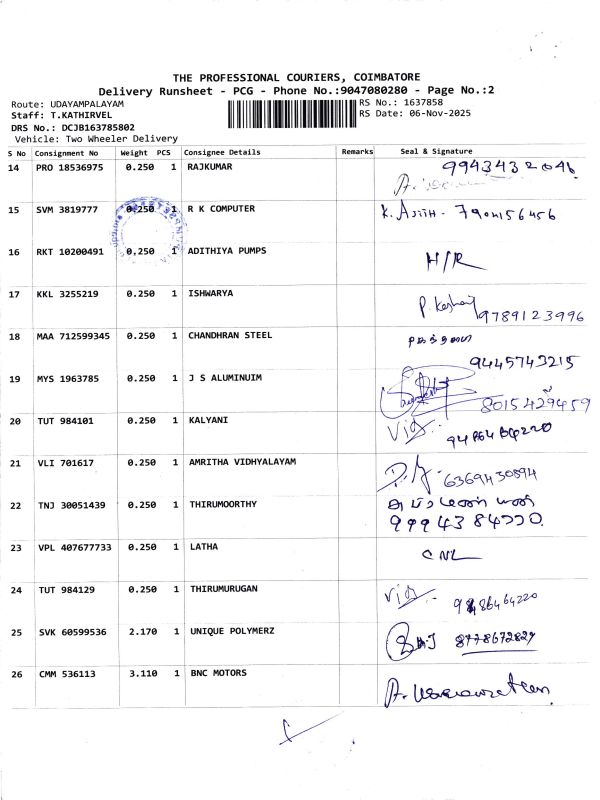 THE PROFESSIONAL COURIERS, COIMBATORE
Delivery Runsheet - PCG - Phone No.:9047080280 - Page No.:2
Route: UDAYAMPALAYAM
RS No.: 1637858
Staff: T.KATHIRVEL
RS Date: 06-Nov-2025
DRS No.: DCJB163785802
Vehicle: Two Wheeler Delivery
S No Consignment No Weight PCS Consignee Details Remarks Seal & Signature
14 PRO 18536975 0.250 1 RAJKUMAR 9943432046
15 SVM 3819777 0.250 1 R K COMPUTER K. Ajith - 7904156456
16 RKT 10200491 0.250 1 ADITHIYA PUMPS H/R
17 KKL 3255219 0.250 1 ISHWARYA 9789123996
18 MAA 712599345 0.250 1 CHANDHRAN STEEL 9445743215
19 MYS 1963785 0.250 1 J S ALUMINUIM 8015429459
20 TUT 984101 0.250 1 KALYANI
21 VLI 701617 0.250 1 AMRITHA VIDHYALAYAM 6369430894
22 TNJ 30051439 0.250 1 THIRUMOORTHY
23 VPL 407677733 0.250 1 LATHA CNL
24 TUT 984129 0.250 1 THIRUMURUGAN
25 SVK 60599536 2.170 1 UNIQUE POLYMERZ 8778672829
26 CMM 536113 3.110 1 BNC MOTORS